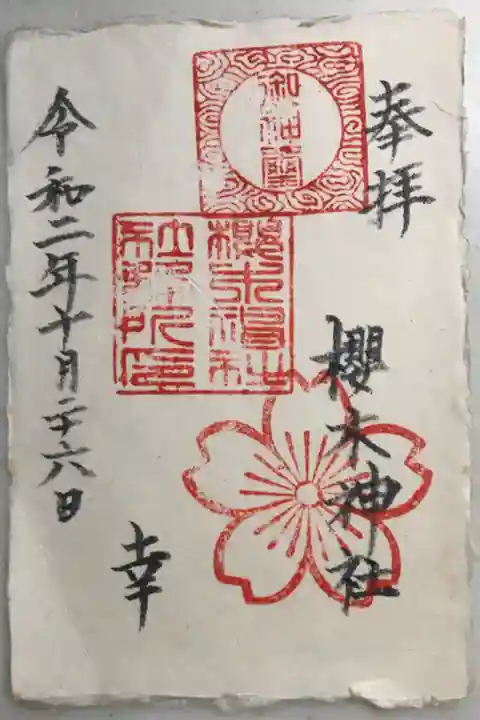 奉拝
櫻木神社
御神璽
櫻木神社
令和二年十月二十六日
幸